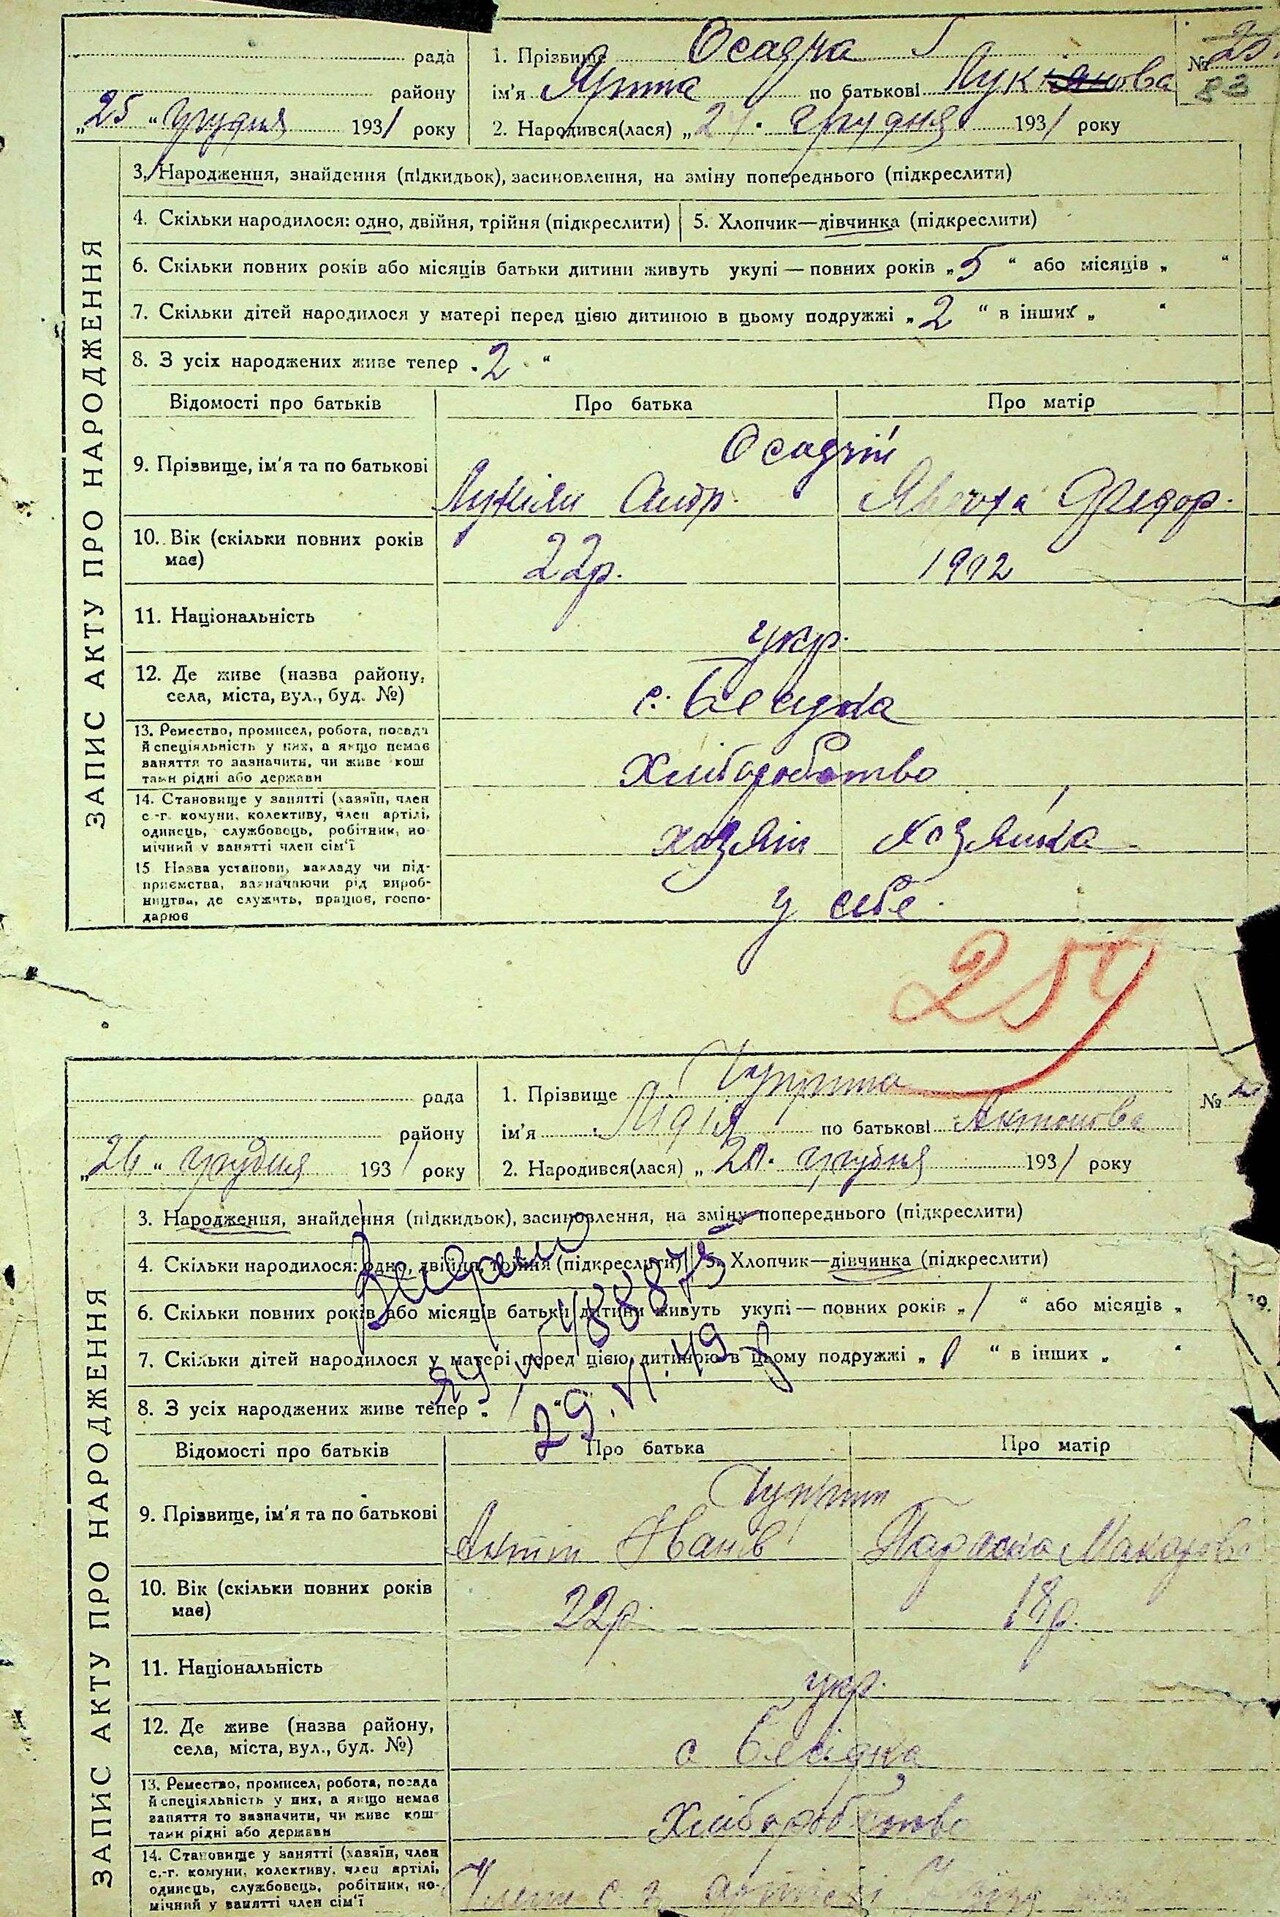 рада
району
„25 “ грудня 1931 року
1. Прізвище Осадча
ім'я по батькові
2. Народився(лася) „24. грудня 1931 року
№
83
ЗАПИС АКТУ ПРО НАРОДЖЕННЯ
3. Народження, знайдення (підкидьок), засиновлення, на зміну попереднього (підкреслити)
4. Скільки народилося: одно, двійня, трійня (підкреслити) 5. Хлопчик—дівчинка (підкреслити)
6. Скільки повних років або місяців батьки дитини живуть укупі — повних років „5 “ або місяців „ “
7. Скільки дітей народилося у матері перед цією дитиною в цьому подружжі „2 “ в інших „ “
8. З усіх народжених живе тепер „2 “
Відомості про батьків Про батька Про матір
9. Прізвище, ім'я та по батькові
Осадчий
Федор.
10. Вік (скільки повних років має)
22р. 1902
11. Національність
укр.
12. Де живе (назва району, села, міста, вул., буд. №)
с. Бесидка
13. Ремество, промисел, робота, посада й спеціяльність у них, а якщо немає заняття то зазначити, чи живе кош тами рідні або держави
Хліборобство
14. Становище у занятті (хазяїн, член с.-г. комуни, колективу, член артілі, одинець, службовець, робітник, по- мічний у занятті член сім'ї
хазяїн хазяйка
15. Назва установи, закладу чи під- приємства, вазначаючи рід вироб- ництва, де служить, працює, госпо- дарює
у себе.
254
рада
району
„26 “ грудня 1931 року
1. Прізвище Чуприна
ім'я Лідія по батькові Антонова
2. Народився(лася) „20. грудня 1931 року
№
ЗАПИС АКТУ ПРО НАРОДЖЕННЯ
3. Народження, знайдення (підкидьок), засиновлення, на зміну попереднього (підкреслити)
4. Скільки народилося: одно, двійня, трійня (підкреслити) 5. Хлопчик—дівчинка (підкреслити)
6. Скільки повних років або місяців батьки дитини живуть укупі — повних років „1 “ або місяців „
7. Скільки дітей народилося у матері перед цією дитиною в цьому подружжі „ “ в інших „ “
8. З усіх народжених живе тепер „
29.VI.49
Відомості про батьків Про батька Про матір
9. Прізвище, ім'я та по батькові
Чуприн
Антін Іванів Параска Макарова
10. Вік (скільки повних років має)
22р. 18р.
11. Національність
укр.
12. Де живе (назва району, села, міста, вул., буд. №)
с Бесідка
13. Ремество, промисел, робота, посада й спеціяльність у них, а якщо немає заняття то зазначити, чи живе кош- тами рідні або держави
Хліборобство
14. Становище у занятті (хазяїн, член с.-г. комуни, колективу, член артілі, одинець, службовець, робітник, по- мічний у занятті член сім'ї
Член с. г. артілі